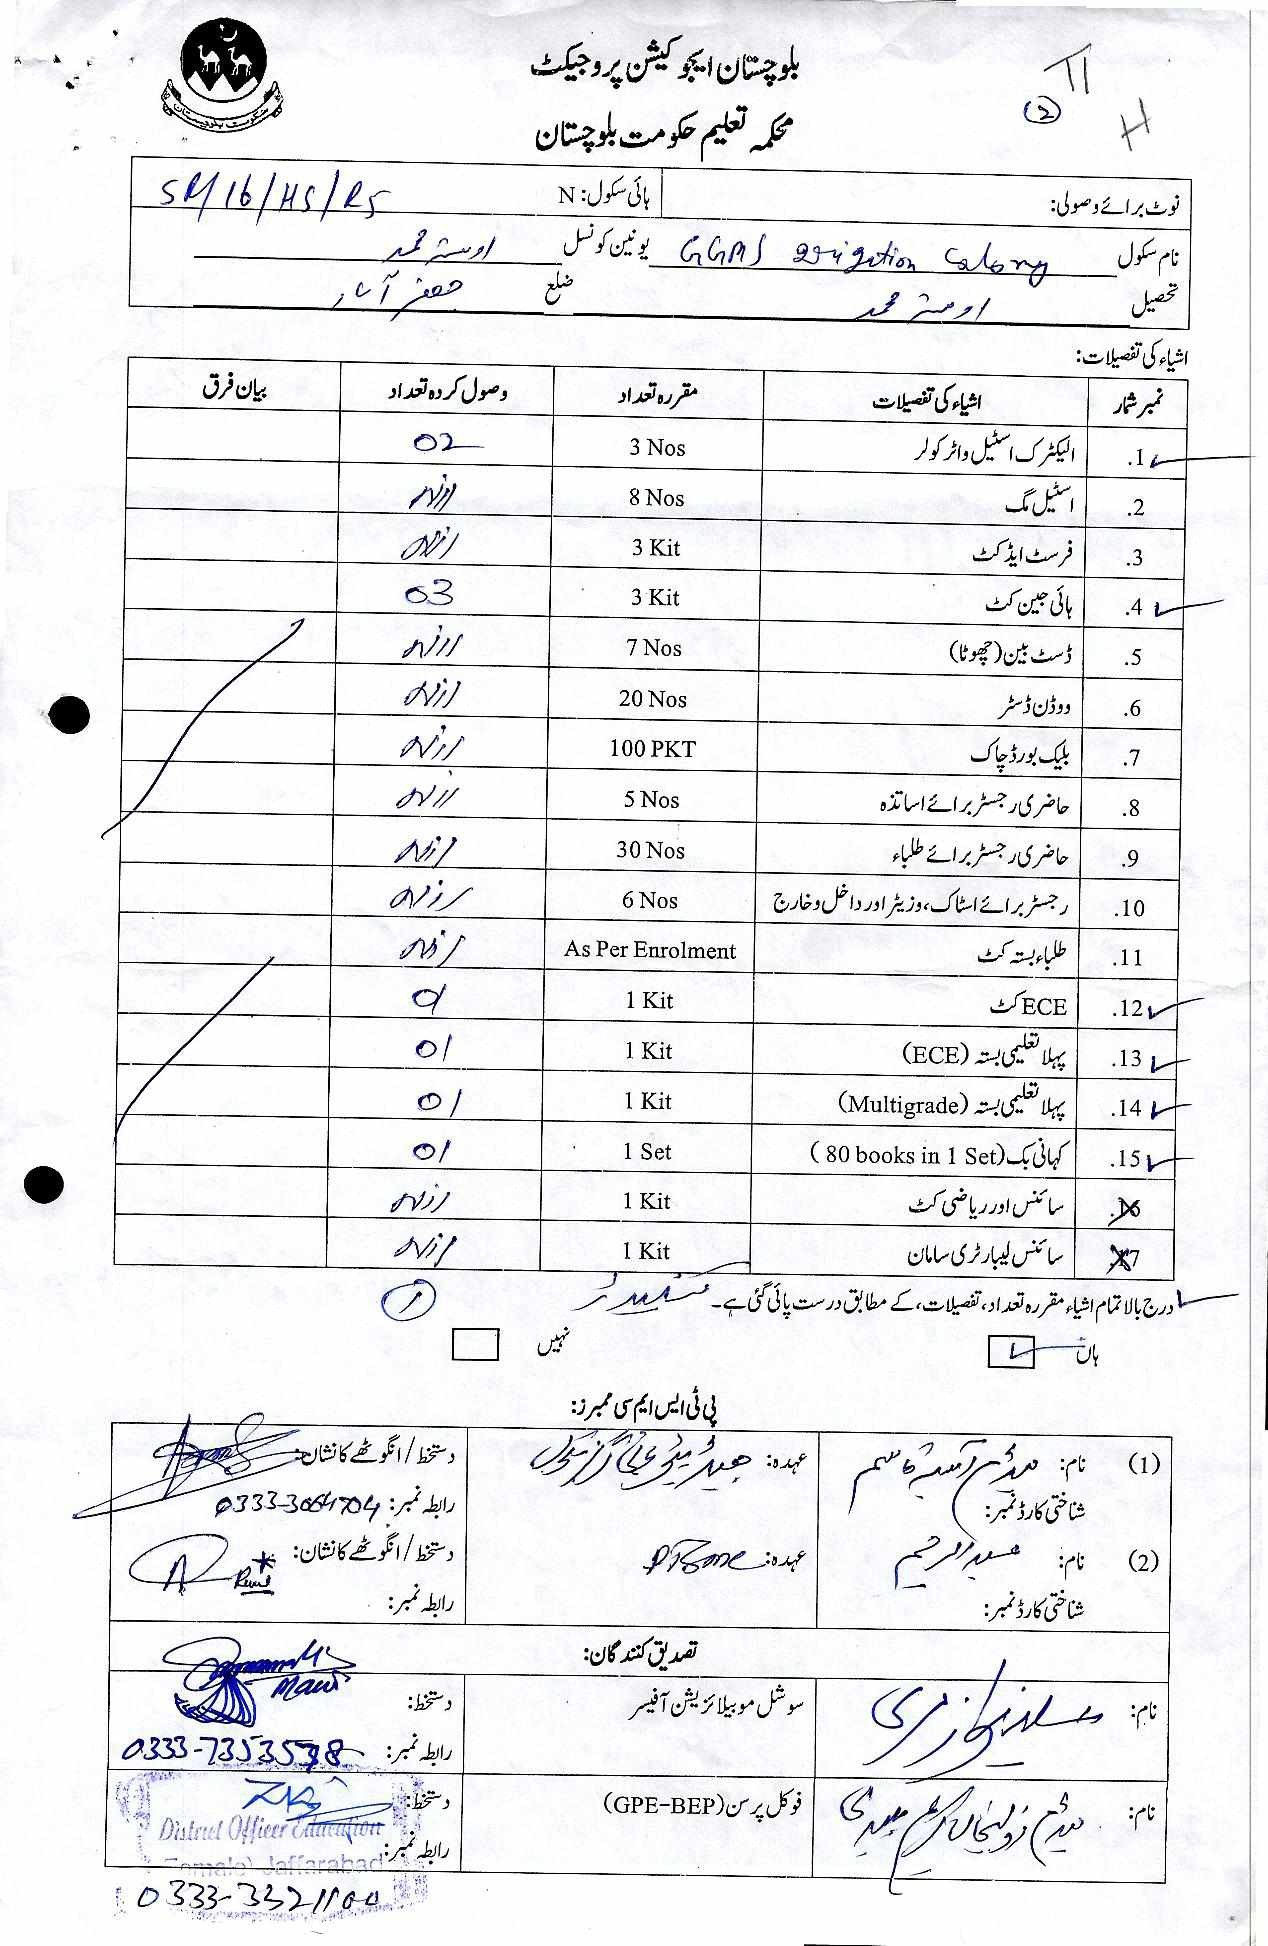 حکومت بلوچستان
بلوچستان ایجوکیشن پروجیکٹ
محکمہ تعلیم حکومت بلوچستان
(2)
H
نوٹ برائے وصولی: ہائی سکول: N SR/16/HS/RS
نام سکول GGMS Irrigation Colony یونین کونسل اوستہ محمد
تحصیل اوستہ محمد ضلع جعفر آباد
اشیاء کی تفصیلات:
نمبر شمار اشیاء کی تفصیلات مقررہ تعداد وصول کردہ تعداد بیان فرق
1. الیکٹرک اسٹیل واٹر کولر 3 Nos 02
2. اسٹیل مگ 8 Nos Nil
3. فرسٹ ایڈ کٹ 3 Kit Nil
4. ہائی جین کٹ 3 Kit 03
5. ڈسٹ بین (چھوٹا) 7 Nos Nil
6. ووڈن ڈسٹر 20 Nos Nil
7. بلیک بورڈ چاک 100 PKT Nil
8. حاضری رجسٹر برائے اساتذہ 5 Nos Nil
9. حاضری رجسٹر برائے طلباء 30 Nos Nil
10. رجسٹر برائے اسٹاک، وزیٹر اور داخل و خارج 6 Nos Nil
11. طلباء بستہ کٹ As Per Enrolment Nil
12. ECE کٹ 1 Kit 01
13. پہلا تعلیمی بستہ (ECE) 1 Kit 01
14. پہلا تعلیمی بستہ (Multigrade) 1 Kit 01
15. کہانی بک (80 books in 1 Set) 1 Set 01
16. سائنس اور ریاضی کٹ 1 Kit Nil
17. سائنس لیبارٹری سامان 1 Kit Nil
درج بالا تمام اشیاء مقررہ تعداد، تفصیلات، کے مطابق درست پائی گئی ہے۔
ہاں نہیں
پی ٹی ایس ایم سی ممبرز:
(1) نام: میڈم آسیہ قاسم عہدہ: دستخط / انگوٹھے کا نشان:
شناختی کارڈ نمبر: رابطہ نمبر: 0333-3064704
(2) نام: عبدالرحیم عہدہ: دستخط / انگوٹھے کا نشان:
شناختی کارڈ نمبر: رابطہ نمبر:
تصدیق کنندگان:
نام: سوشل موبیلائزیشن آفیسر دستخط:
رابطہ نمبر: 0333-7353538
نام: فوکل پرسن (GPE-BEP) دستخط:
District Officer Education
رابطہ نمبر:
(Female) Jaffarabad
0333-3321100